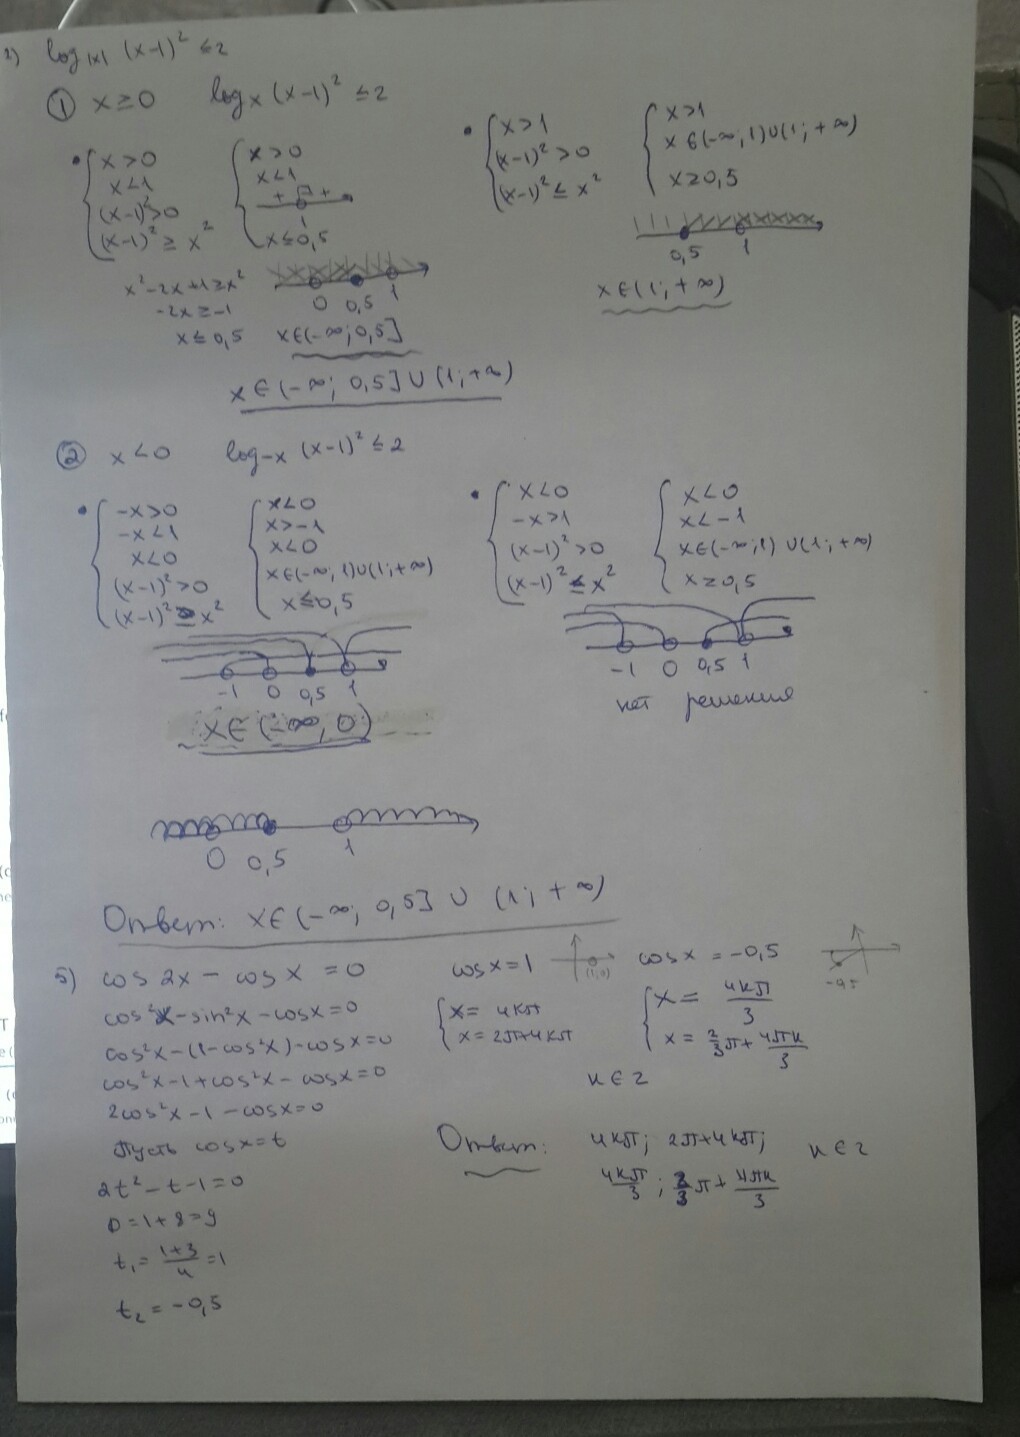 2) log|x| (x-1)² ≤ 2
① x ≥ 0 log x (x-1)² ≤ 2
x > 0
x < 1
(x-1)² > 0
(x-1)² ≥ x²
x > 0
x < 1
+ +
1
x ≤ 0,5
x² - 2x + 1 ≥ x²
-2x ≥ -1
x ≤ 0,5
0 0,5 1
x ∈ (-∞; 0,5]
x > 1
(x-1)² > 0
(x-1)² ≤ x²
x > 1
x ∈ (-∞; 1) ∪ (1; +∞)
x ≥ 0,5
0,5 1
x ∈ (1; +∞)
x ∈ (-∞; 0,5] ∪ (1; +∞)
② x < 0 log -x (x-1)² ≤ 2
-x > 0
-x < 1
x < 0
(x-1)² > 0
(x-1)² ≥ x²
x < 0
x > -1
x < 0
x ∈ (-∞; 1) ∪ (1; +∞)
x ≤ 0,5
-1 0 0,5 1
x ∈ (-∞, 0)
x < 0
-x > 1
(x-1)² > 0
(x-1)² ≤ x²
x < 0
x < -1
x ∈ (-∞; 1) ∪ (1; +∞)
x ≥ 0,5
-1 0 0,5 1
нет решения
0 0,5 1
Ответ: x ∈ (-∞; 0,5] ∪ (1; +∞)
5) cos 2x - cos x = 0
cos²x - sin²x - cos x = 0
cos²x - (1 - cos²x) - cos x = 0
cos²x - 1 + cos²x - cos x = 0
2cos²x - 1 - cos x = 0
Пусть cos x = t
2t² - t - 1 = 0
D = 1 + 8 = 9
t₁ = (1+3)/4 = 1
t₂ = -0,5
cos x = 1
x = 4kπ
x = 2π + 4kπ
cos x = -0,5
x = 4kπ/3
x = 2/3 π + 4πk/3
k ∈ z
Ответ: 4kπ; 2π + 4kπ; k ∈ z
4kπ/3; 2/3 π + 4πk/3